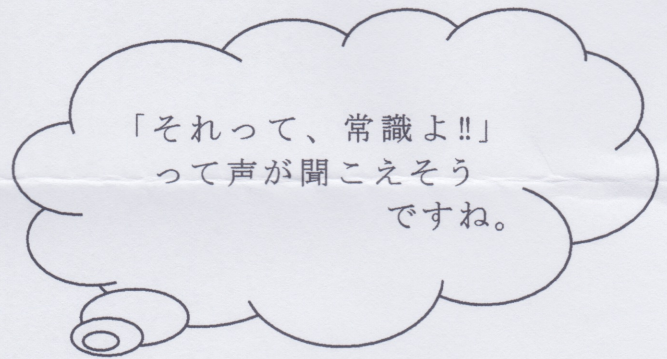 「それって、常識よ‼」
って声が聞こえそう
ですね。